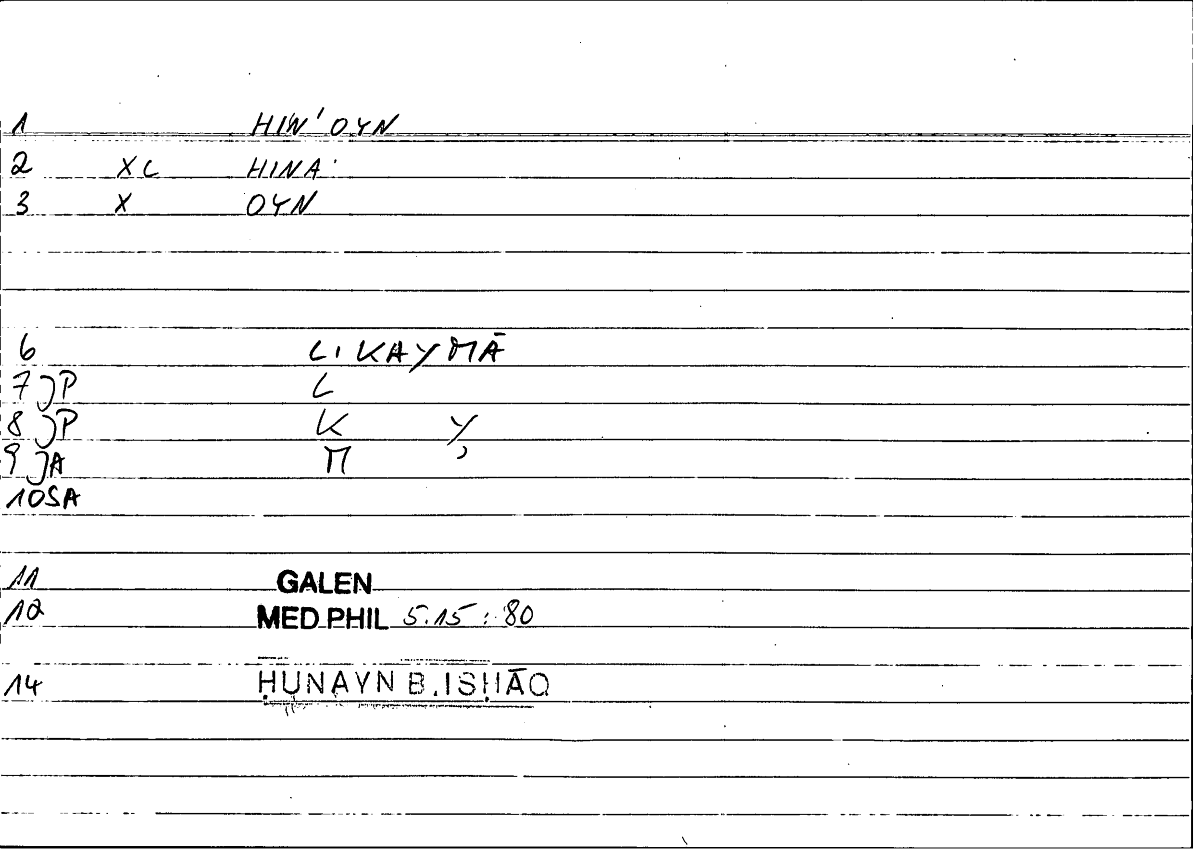 1 HIN'OYN
2 XC HINA'
3 X OYN
6 LI KAYMĀ
7 JP L
8 JP K Y,
9 JA M
10SA
11 GALEN
12 MED PHIL 5.15 : 80
14 ḤUNAYN B. ISḤĀQ